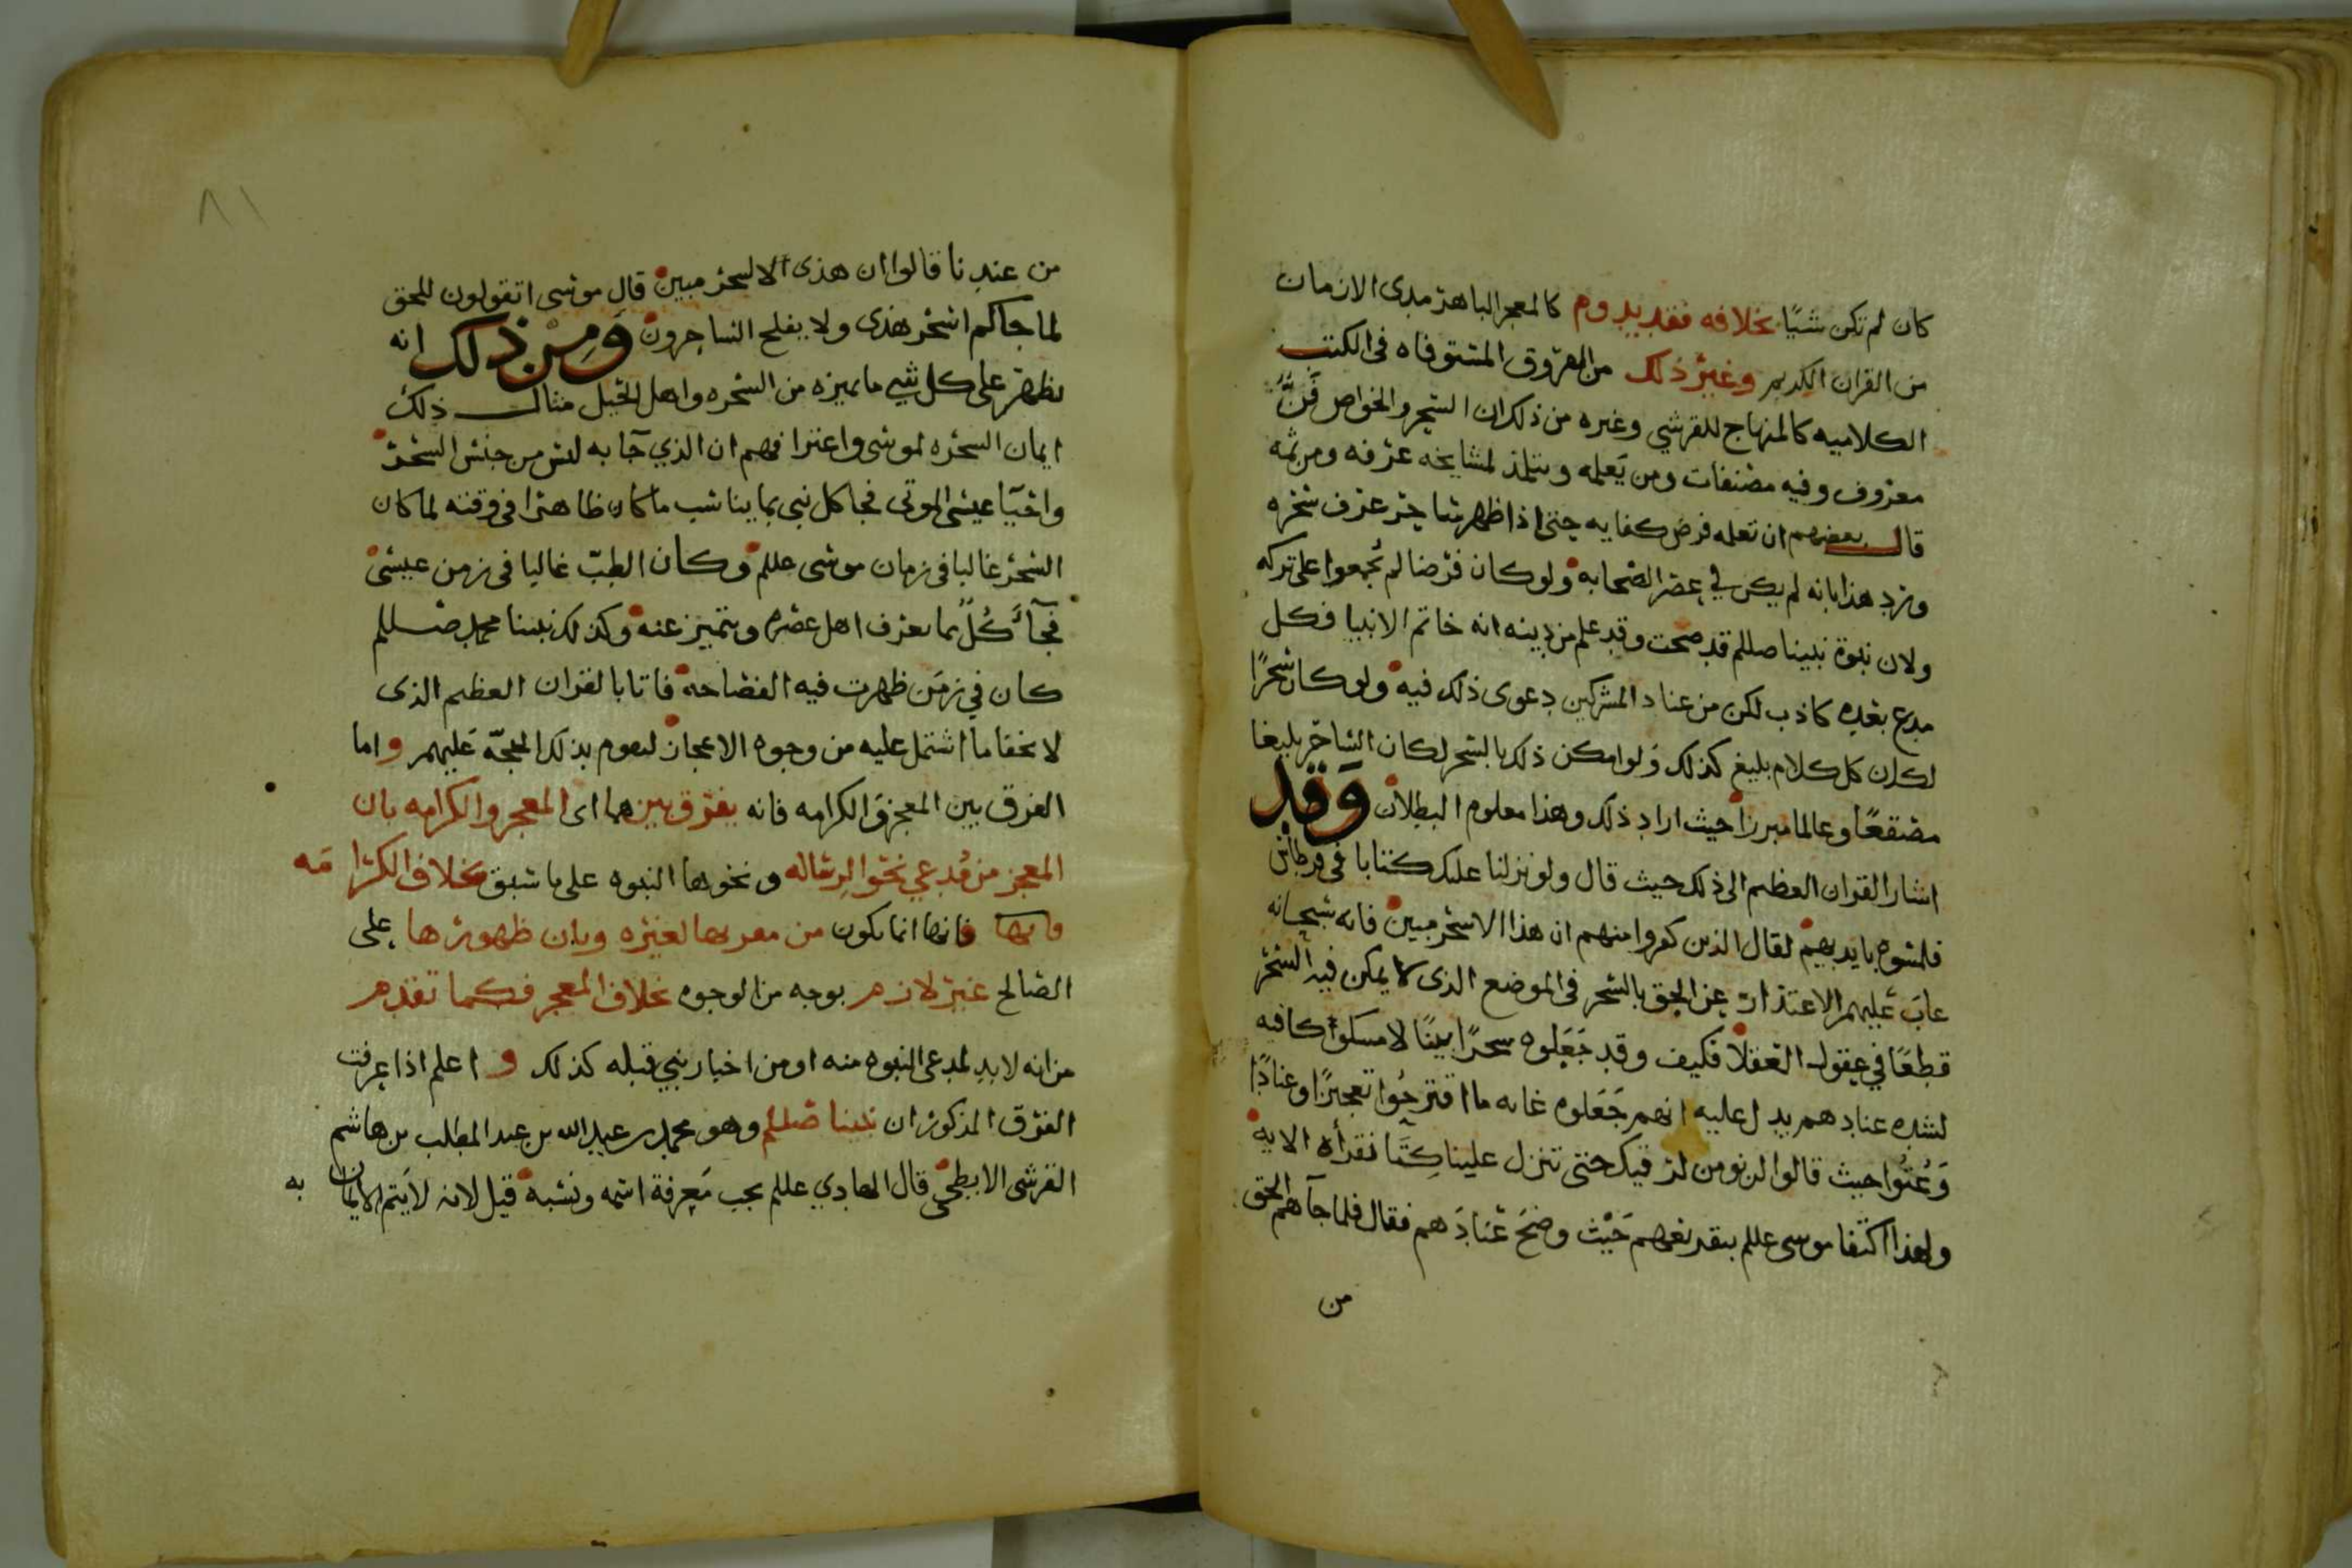 كان لم تكن شيًا بخلافه فقد يدوم كالمعجز الباهر مدى الازمان
من القران الكريم وغير ذلك من الفروق المستوفاه فى الكتب
الكلاميه كالمنهاج للقرشي وغيره من ذلك ان السحر والخواص فَنٌّ
معروف وفيه مصنفات ومن يَعلمه ويتلمذ لمشايخه عرفه ومن ثمه
قال بعضهم ان تعلمه فرض كفايه حتى اذا ظهر ساحر عرف سحره
ورد هذا بانه لم يكن في عصر الصحابه ولو كان فرضا لم يُجمعوا على تركه
ولان نبوة نبينا صللم قد صحت وقد علم من دينه انه خاتم الانبيا فكل
مدع بعده كاذب لكن من عناد المشركين دعوى ذلك فيه ولو كان سحرًا
لكان كل كلام بليغ كذلك ولو امكن ذلك بالسحر لكان الساحر بليغا
مصقعًا وعالما مبرزا حيث اراد ذلك وهذا معلوم البطلان وَقَد
اشار القران العظيم الى ذلك حيث قال ولو نزلنا عليك كتابا فى قرطاس
فلمسوه بايديهم لقال الذين كفروا منهم ان هذا الا سحر مبين فانه سبحانه
عابَ عليهم الاعتذار عن الحق بالسحر فى الموضع الذى لا يمكن فيه السحر
قطعًا في عقول العقلا فكيف وقد جَعَلوه سحرًا بينًا لا مسكوا كافيه
لشده عنادهم يدل عليه انهم جَعَلوه غايه ما اقترحُوا تعجيزًا وعنادًا
وَعُتُوا حيث قالوا لن نومن لرقيك حتى تنزل علينا كِتَبًا نقرأه الايه
ولهذا اكتفا موسى عللم بتقريعهم حَيْث وضحَ عنَادَهم فقال فلما جآهم الحق
من
٨١
من عندنا قالوا ان هذى الا لسحر مبين قال موسى اتقولون للحق
لما جاكم اسحر هذى ولا يفلح الساحرون وَمِنْ ذلك انه
يظهر على كل شي ما يميزه من السحره واهل الحيل مثال ذلك
ايمان السحره لموسى واعترافهم ان الذي جآ به ليس من جنس السحر
واحيآ عيسى الموتى فجا كل نبى بما يناسب ما كان ظاهرا فى وقته لما كان
السحر غالبا فى زمان موسى عللم وكان الطبّ غالبا فى زمن عيسى
فجآ كُلٌّ بما يعرف اهل عصره ويتميز عنه وكذلك نبينا محمد صللم
كان في زمَن ظهرت فيه الفصاحه فاتا بالقران العظيم الذى
لا يخفا ما اشتمل عليه من وجوه الاعجاز لتقوم بذلك الحجّه عَليهم واما
الفرق بين المعجز وَالكرامه فانه يفرق بينهما اى المعجز والكرامه بان
المعجز من مُدعي نحو الرساله ونحوها النبوه على ما سبق بخلاف الكرامَه
فانها فانها انما يكون من لغيره وبان ظهورها على
الصالح غير لازم بوجه من الوجوه بخلاف المعجز فكما تقدم
من انه لابد لمدعى النبوه منه او من اخبار نبي قبله كذلك و اعلم اذا عرفت
الفرق المذكور ان نبينا صللم وهو محمد بن عبد الله بن عبد المطلب بن هاشم
القرشى الابطحى قال الهادي عللم يجب مَعرفة اسمه ونسبه قيل لانه لا يَتم الايمان به